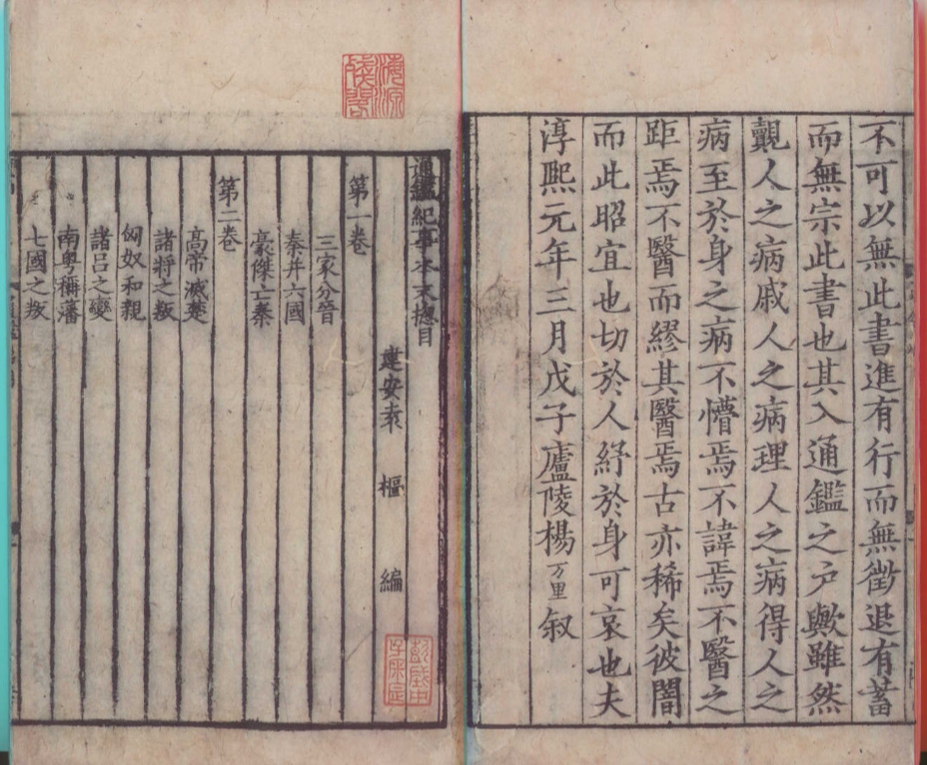 不可以無此書進有行而無徵退有蓄
而無宗此書也其入通鑑之户歟雖然
覿人之病戚人之病理人之病得人之
病至於身之病不懵焉不諱焉不醫之
距焉不醫而繆其醫焉古亦稀矣彼闇
而此昭宜也切於人紓於身可哀也夫
淳熙元年三月戊子廬陵楊万里叙
通鑑紀事本末揔目
建安袁樞編
第一卷
三家分晉
秦并六國
豪傑亡秦
第二卷
高帝滅楚
諸將之叛
匈奴和親
諸呂之變
南粤稱藩
七國之叛